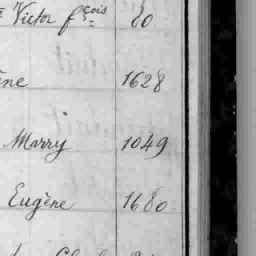 Victor fçois 80
ne 1628
Marry 1049
Eugène 1680